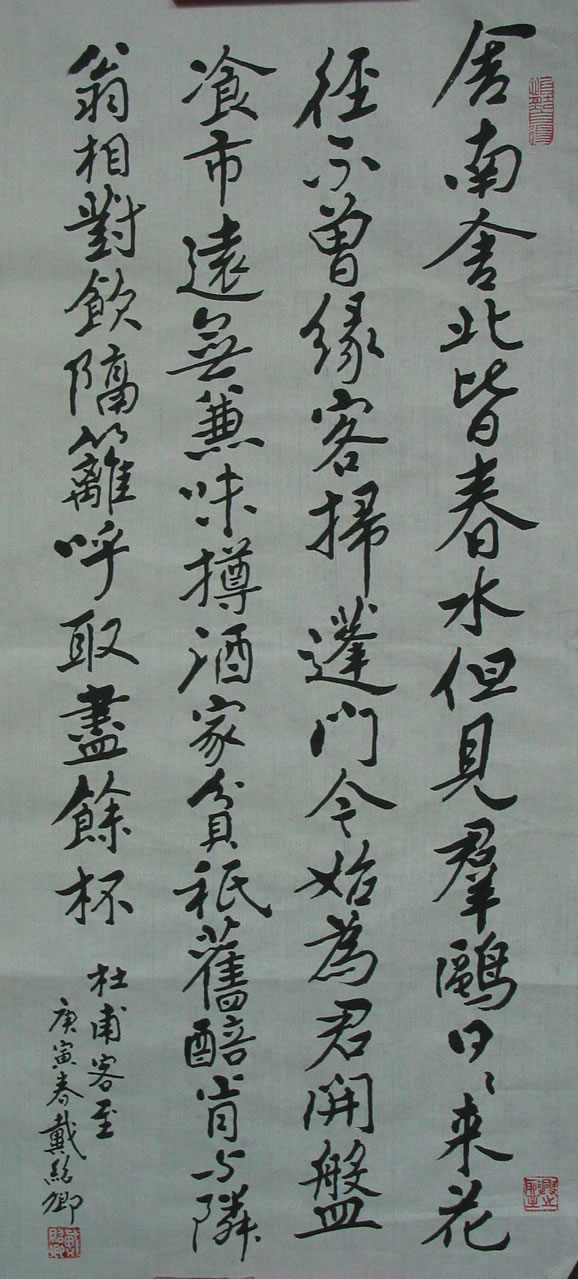 舍南舍北皆春水但見羣鷗日〻来花
徑不曾緣客掃蓬門今始為君開盤
飡市遠無兼味樽酒家貧祇舊醅肯与隣
翁相對飲隔籬呼取盡餘杯
杜甫客至
庚寅春戴紹卿